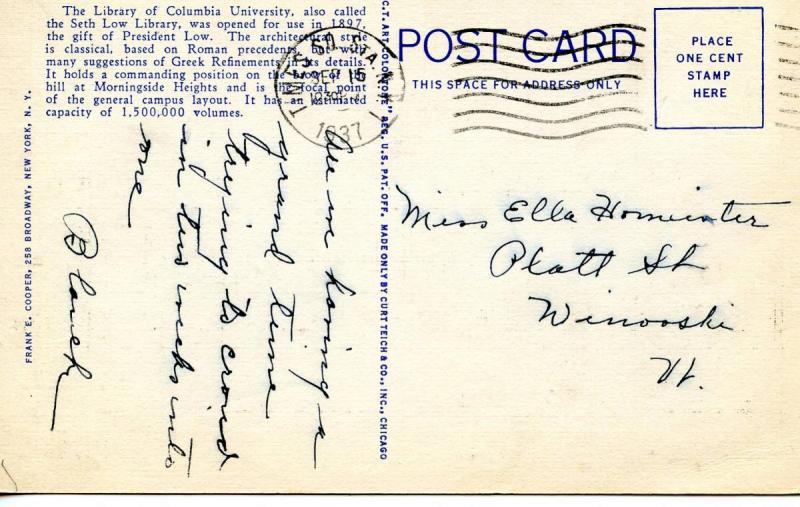 The Library of Columbia University, also called
the Seth Low Library, was opened for use in 1897,
the gift of President Low. The architectural style
is classical, based on Roman precedents, but with
many suggestions of Greek Refinements in its details.
It holds a commanding position on the brow of the
hill at Morningside Heights and is the focal point
of the general campus layout. It has an estimated
capacity of 1,500,000 volumes.
FRANK E. COOPER, 258 BROADWAY, NEW YORK, N. Y.
C.T. ART-COLORTONE" REG. U.S. PAT. OFF. MADE ONLY BY CURT TEICH & CO., INC., CHICAGO
POST CARD
THIS SPACE FOR ADDRESS ONLY
PLACE
ONE CENT
STAMP
HERE
TIMES SQ. STA.
SEP 15
1937
having a
grand time
trying to crowd
in two weeks into
one
Blanch
Miss Ella
Platt St
Winooski
Vt.